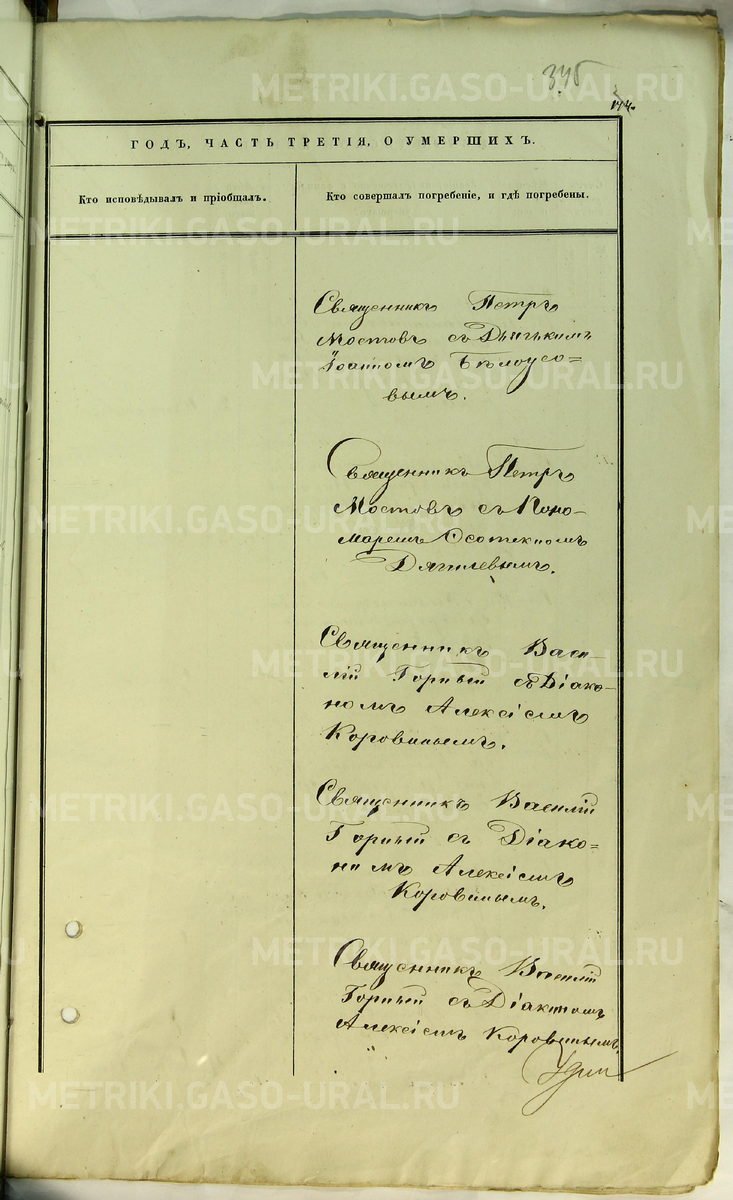 345
174.
ГОДЪ, ЧАСТЬ ТРЕТІЯ, О УМЕРШИХЪ.
Кто исповѣдывалъ и пріобщалъ.
Кто совершалъ погребеніе, и гдѣ погребены.
Священникъ Петръ
Мостовъ съ Дьячькимъ
Іоанномъ Бѣлоусо=
вымъ.
Священникъ Петръ
Мостовъ съ Поно-
маремъ
Дягилевымъ.
Священникъ Васи
лій Горный съ Діако-
номъ Алексіемъ
Коровинымъ.
Священникъ Василій
Горный съ Діако=
номъ Алексіемъ
Коровинымъ.
Священникъ Василій
Горный съ Діакономъ
Алексіемъ Коровинымъ.
METRIKI.GASO-URAL.RU